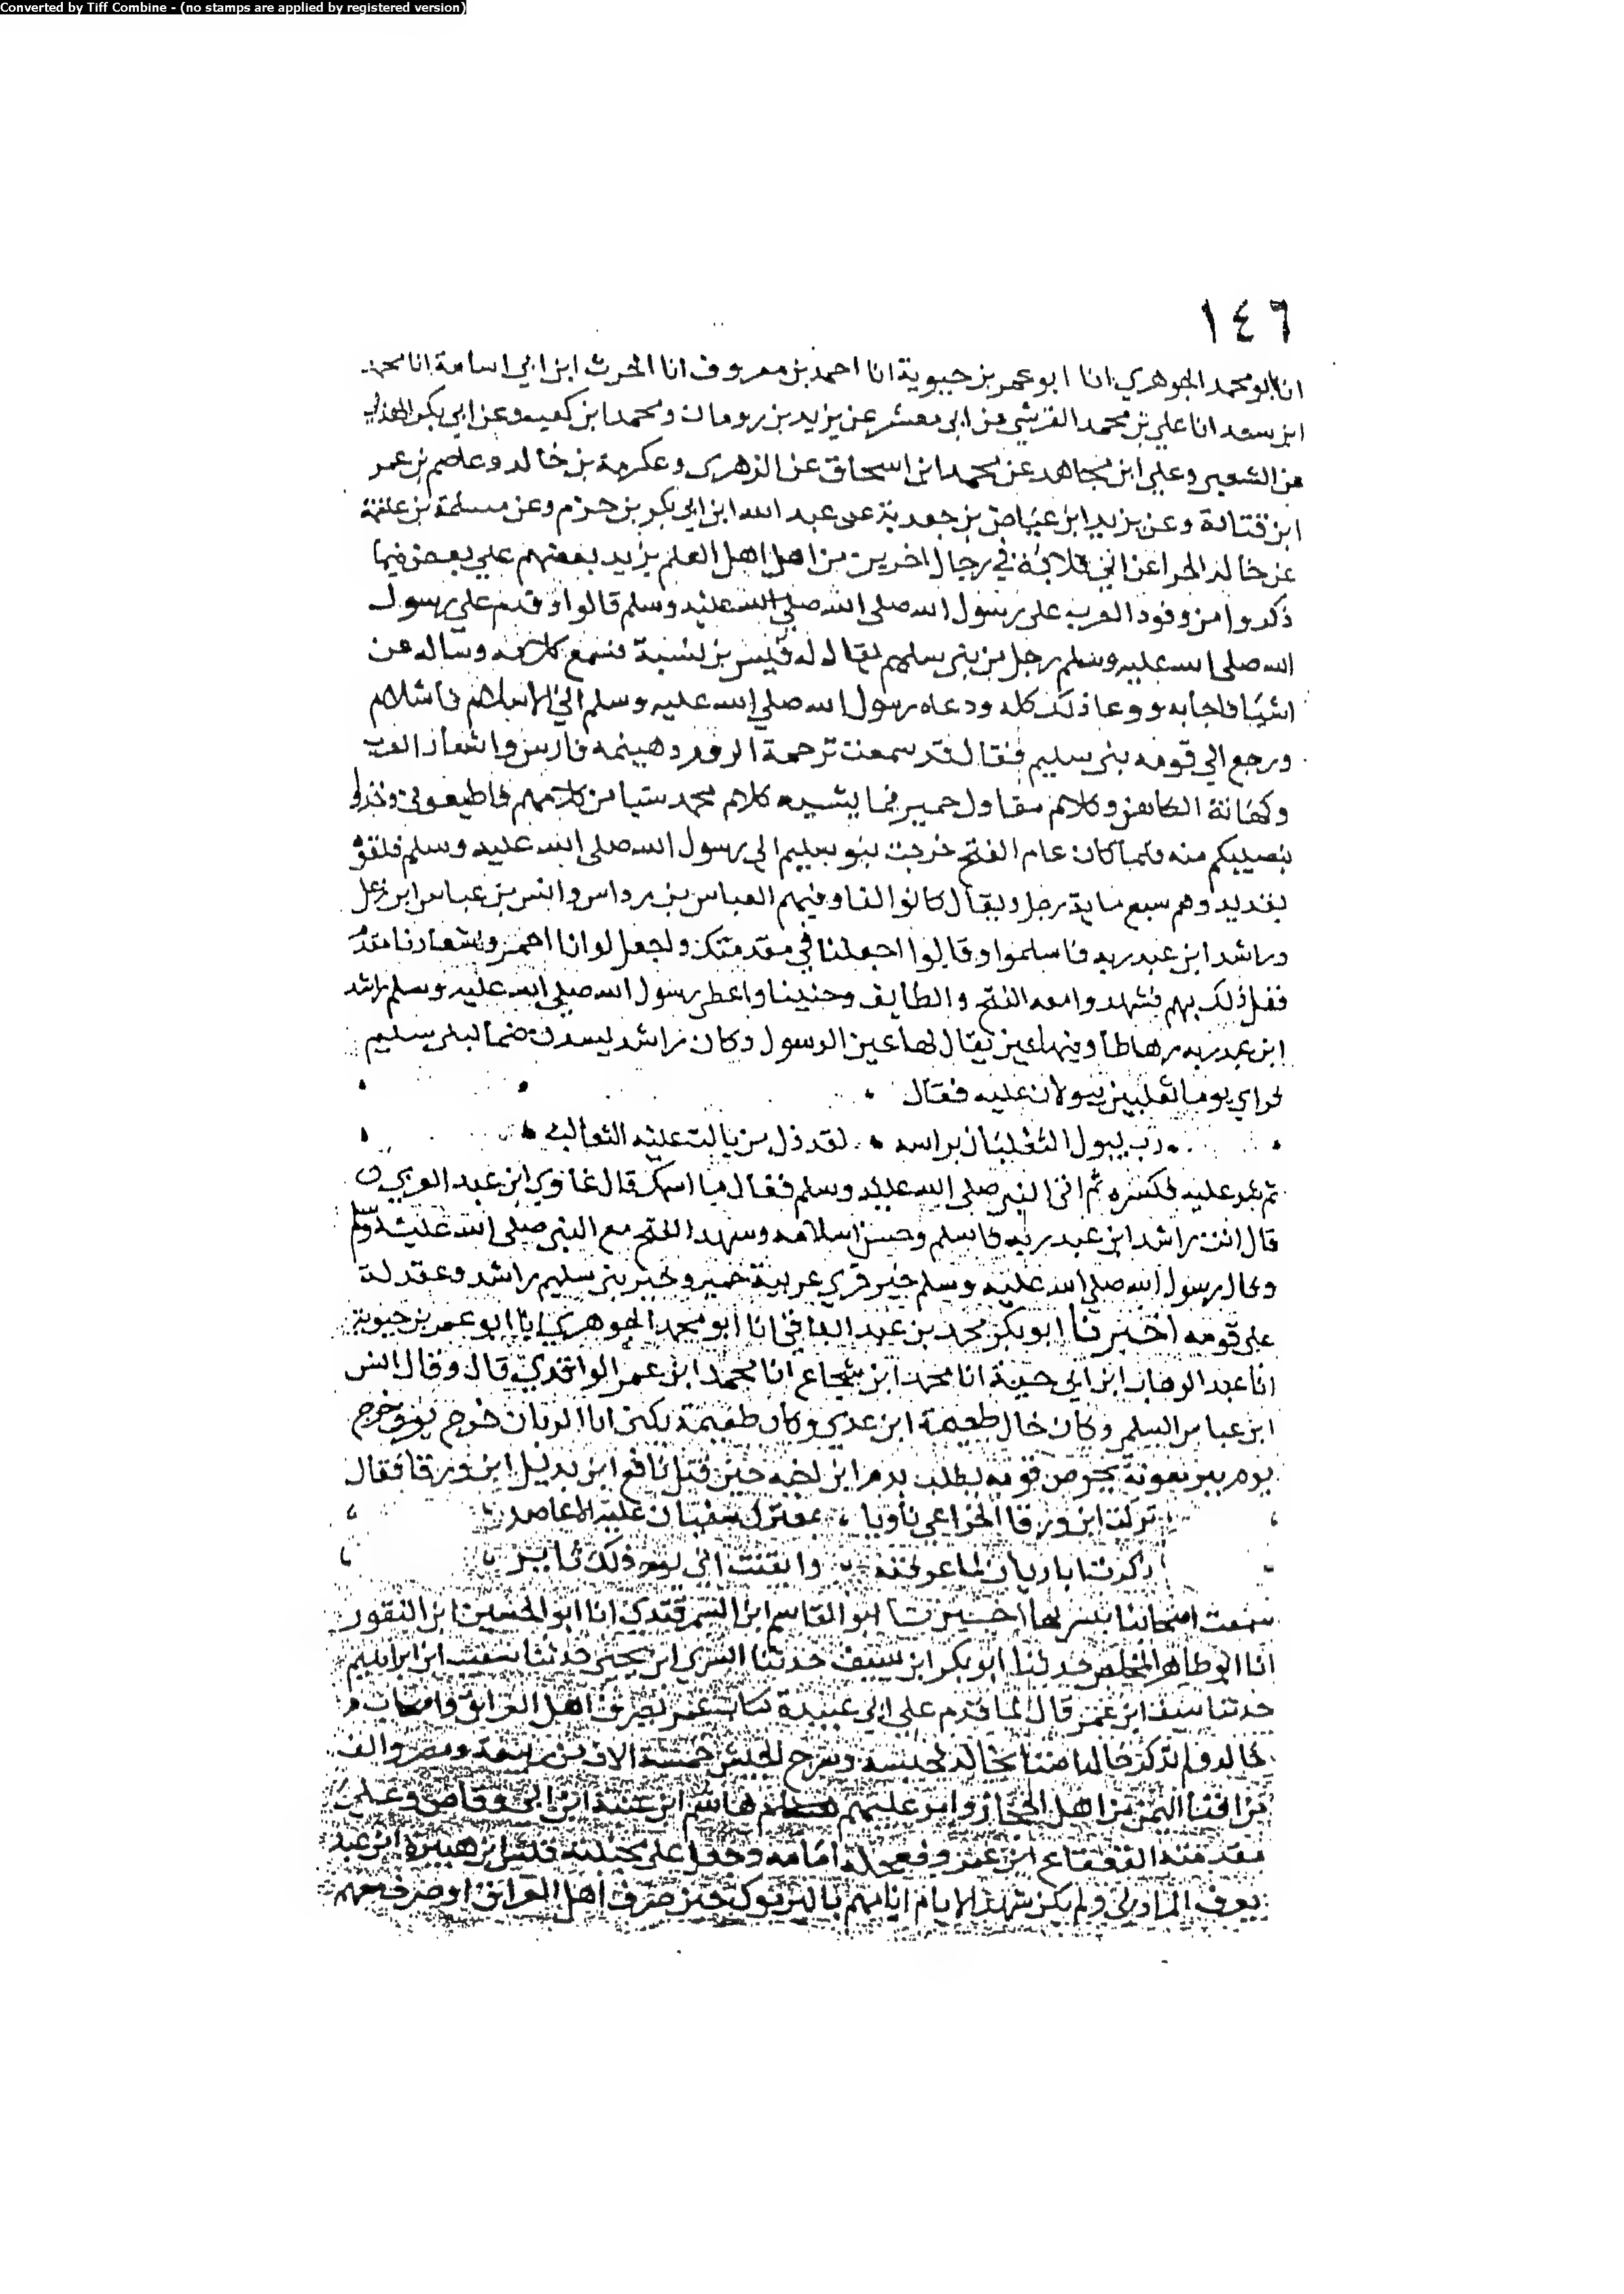 Converted by Tiff Combine - (no stamps are applied by registered version)
١٤٦
انا ابو محمد الجوهري انا ابو عمر بن حيوية انا احمد بن معروف انا الحرث ابن ابي اسامة انا محمد
ابن سعد انا علي بن محمد القرشي عن ابي معشر عن يزيد بن رومان ومحمد ابن كعب وعن ابي بكر الهذلي
عن الشعبي وعلي ابن مجاهد عن محمد ابن اسحاق عن الزهرى وعكرمة بن خالد وعاصم بن عمر
ابن قتادة وعن يزيد ابن عياض بن جعدبة عن عبد الله ابن ابي بكر بن حزم وعن مسلمة بن علقمة
عن خالد الحذا عن ابي قلابة في رجال اخرين من اهل اهل العلم يزيد بعضهم علي بعض فيما
ذكروا من وفود العرب على رسول الله صلى الله صلي الله عليه وسلم قالوا وقدم علي رسول
الله صلى الله عليه وسلم رجل من بني سليم يقال له قيس بن نسيبة فسمع كلامه وساله عن
اشيا فاجابه ووعا ذلك كله ودعاه رسول الله صلي الله عليه وسلم الي الاسلام فاسلام
ورجع الي قومه بني سليم فقال قد سمعت ترجمة الروم وهينمه فارس واشعار العرب
وكهانة الكاهن وكلام مقاول حمير فما يشبه كلام محمد شيا من كلامهم فاطيعوني وخذوا
بنصيبكم منه فلما كان عام الفتح خرجت بنو سليم الي رسول الله صلى الله عليه وسلم فلقوه
بقديد وهم سبع ماية رجل ويقال كانوا الفا وفيهم العباس بن مرداس وانس بن عباس ابن رعل
وراشد ابن عبد ربه فاسلموا وقالوا اجعلنا في مقدمتك واجعل لوانا احمر وشعارنا مقدم
ففعل ذلك بهم فشهدوا معه الفتح والطايف وحنينا واعطى رسول الله صلى الله عليه وسلم راشد
ابن عبد ربه رهاطا وفيها عين يقال لها عين الرسول وكان راشد يسدن صنما لبني سليم
فراي يوما ثعلبين يبولان عليه فقال
رب يبول الثعلبان براسه لقد ذل من بالت عليه الثعالب
ثم شد عليه فكسره ثم اتى النبي صلى الله عليه وسلم فقال ما اسمك قال غاوي ابن عبد العزي
قال انت راشد ابن عبد ربه فاسلم وحسن اسلامه وشهد الفتح مع النبي صلى الله عليه وسلم
وقال رسول الله صلى الله عليه وسلم خير قري عربية خيبر وخير بني سليم راشد وعقد له
على قومه اخبرنا ابو بكر محمد بن عبد الباقي انا ابو محمد الجوهري انا ابو عمر بن حيوية
انا عبد الوهاب ابن ابي حية انا محمد ابن شجاع انا محمد ابن عمر الواقدي قال وقال انس
ابن عباس السلمي وكان خال طعيمة ابن عدى وكان طعيمة يكنى ابا الريان خرج
يوم بير معونة يحرض قومه يطلب بدم ابن اخيه حتى قتل نافع ابن بديل ابن ورقا فقال
تركت ابن ورقا الخزاعي ثاويا بمعترك تسفي عليه الاعاصر
ذكرت ابا ريان لما عرفته وايقنت اني يوم ذلك ثاير
سمعت اصحابنا اخبرنا ابو القاسم ابن السمرقندي انا ابو الحسين ابن النقور
انا ابو طاهر المخلص حدثنا ابو بكر ابن سيف حدثنا السري ابن يحيى حدثنا شعيب ابن ابراهيم
حدثنا سيف ابن عمر قال لما قدم على ابي عبيدة كتاب عمر بصرف اهل العراق
خالد ولم يذكر خالدا خالد وسرح الجيش خمسة الاف من ربيعة ومضر والف
من افنا اليمن من اهل الحجاز وامر عليهم هاشم ابن عتبة ابن ابي وقاص وعلى
مقدمته القعقاع ابن عمرو امامه وجعل على مجنبته قيس ابن هبيرة ابن عبد
يغوث المرادي ولم يكن شهد الايام اتاهم باليرموك حين صرف اهل العراق معهم